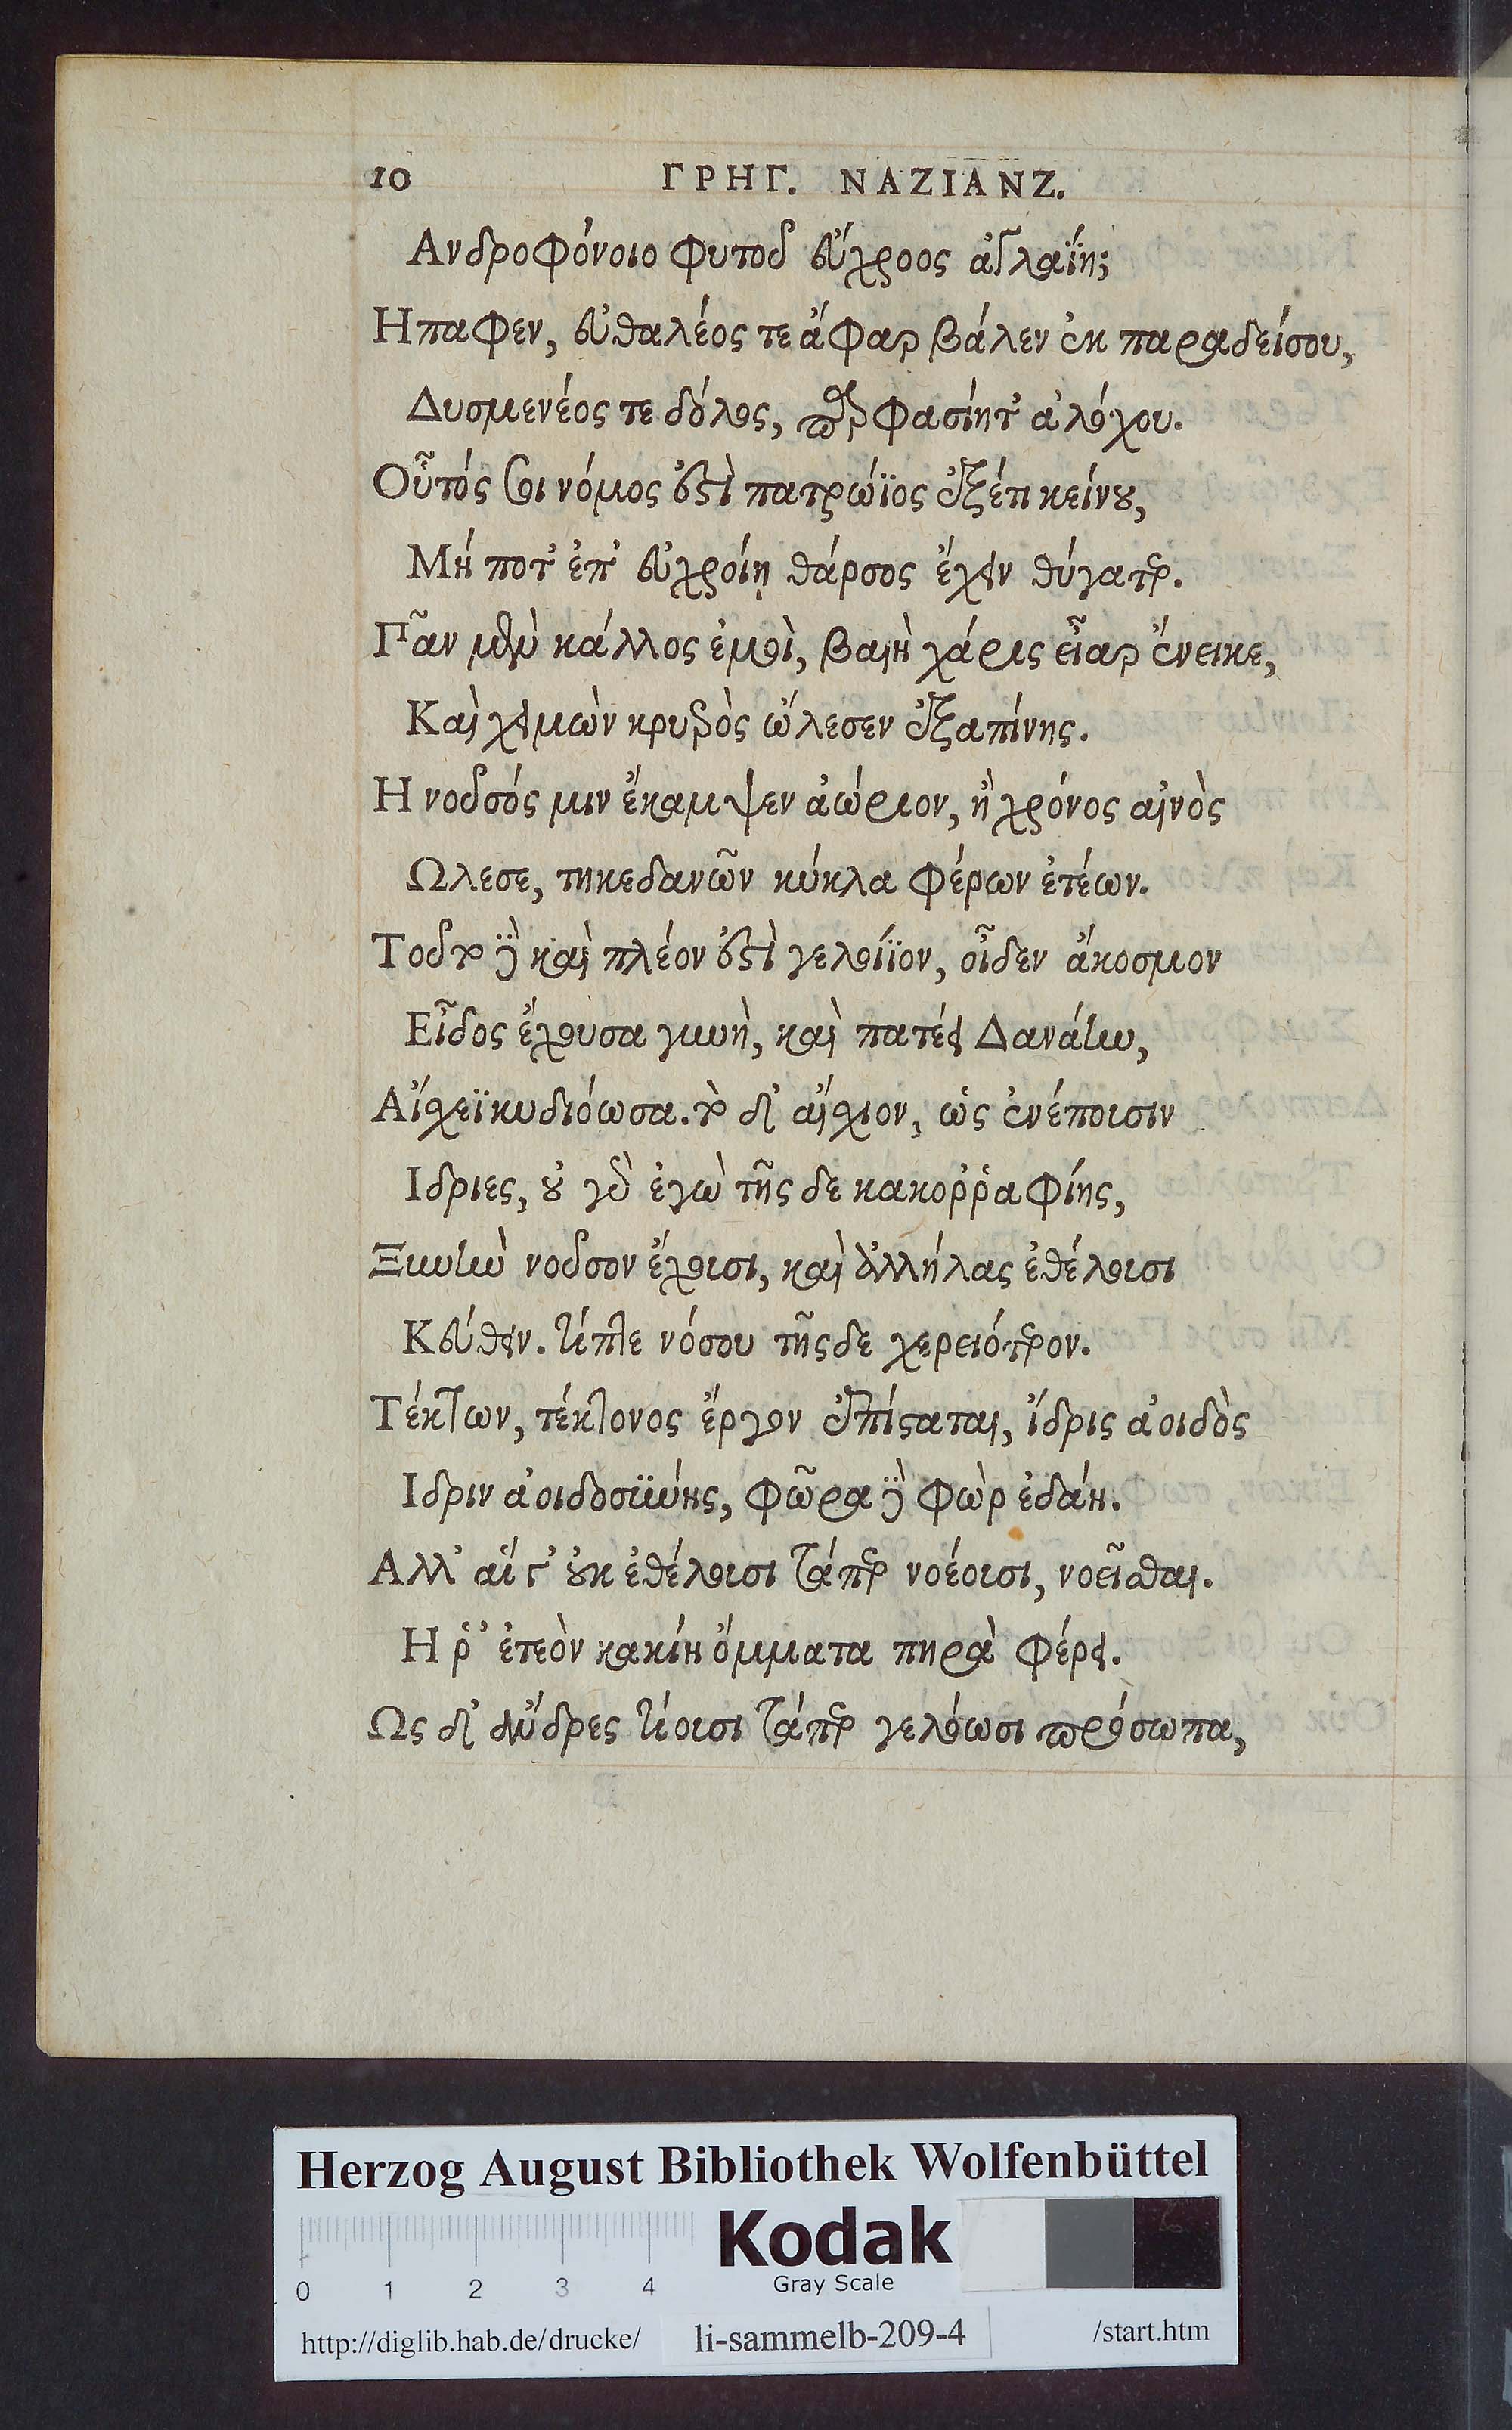 10 ΓΡΗΓ. ΝΑΖΙΑΝΖ.
Ανδροφόνοιο φυτοῦ εὔχροος ἀγλαΐη;
Ηπαφεν, εὐθαλέος τε ἄφαρ βάλεν ἐκ παραδείσου,
Δυσμενέος τε δόλος, παρφασίητ᾽ ἀλόχου.
Οὗτός σοι νόμος ἐστὶ πατρώϊος ἐξέτι κείνου,
Μή ποτ᾽ ἐπ᾽ εὐχροίη θάρσος ἔχειν θύγατερ.
Πᾶν μὲν κάλλος ἐμοὶ, βαιὴ χάρις εἶαρ ἔνεικε,
Καὶ χειμὼν κρυερὸς ὤλεσεν ἐξαπίνης.
Η νοῦσός μιν ἔκαμψεν ἀώριον, ἢ χρόνος αἰνὸς
Ωλεσε, τηκεδανῶν κύκλα φέρων ἐτέων.
Τοῦτο δὲ καὶ πλέον ἐστὶ γελοίϊον, οἶδεν ἄκοσμον
Εἶδος ἔχουσα γυνὴ, καὶ πατέει Δανάην,
Αἴσχεϊ κυδιόωσα. τὸ δ᾽ αἴσχιον, ὡς ἐνέποισιν
Ιδριες, οὐ γὰρ ἐγὼ τῆς δε κακοῤῥαφίης,
Ξυνὴν νοῦσον ἔχουσι, καὶ ἀλλήλας ἐθέλουσι
Κεύθειν. τίπτε νόσου τῆςδε χερειότερον.
Τέκτων, τέκτονος ἔργον ἐπίσταται, ἴδρις ἀοιδὸς
Ιδριν ἀοιδοσύνης, φῶρα δὲ φὼρ ἐδάη.
Αλλ᾽ αἵ γ᾽ οὐκ ἐθέλουσι τάπερ νοέουσι, νοεῖσθαι.
Η ῥ᾽ ἐτεὸν κακίη ὄμματα πηρὰ φέρει.
Ως δ᾽ ἄνδρες τίουσι τάπερ γελόωσι πρόσωπα,
Herzog August Bibliothek Wolfenbüttel
Kodak
Gray Scale
0 1 2 3 4
http://diglib.hab.de/drucke/ li-sammelb-209-4 /start.htm